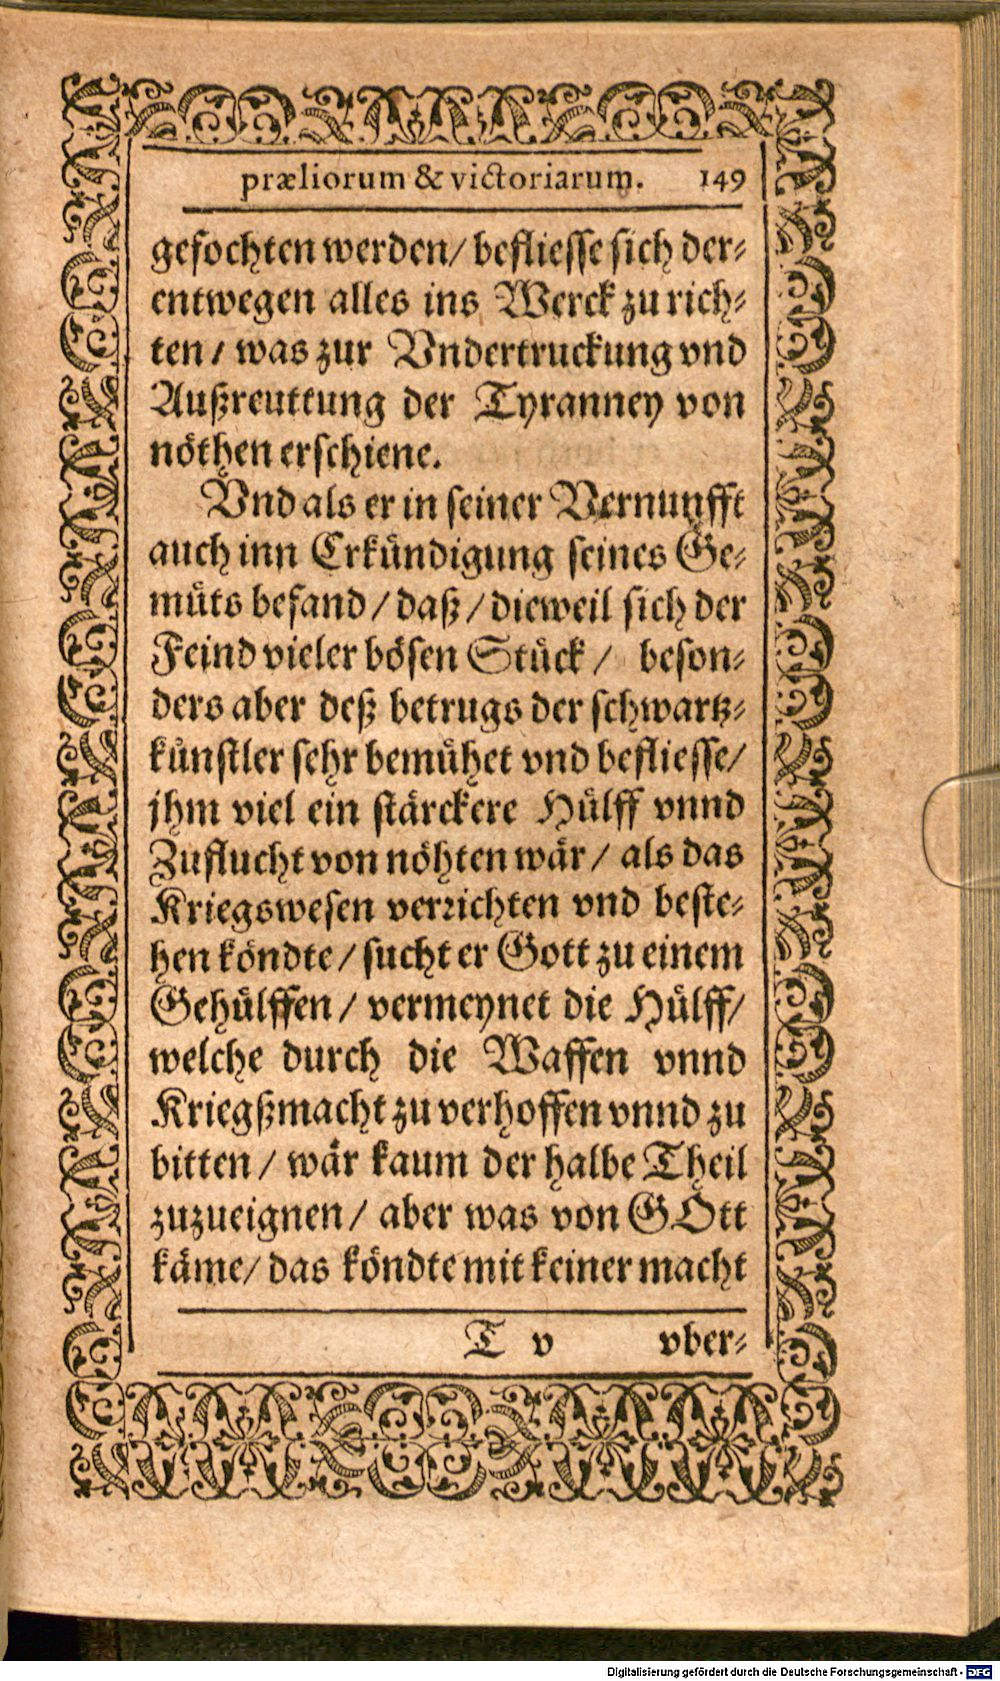 præliorum & victoriarum. 149
gefochten werden/ befliesse sich der-
entwegen alles ins Werck zu rich-
ten / was zur Vndertruckung vnd
Außreuttung der Tyranney von
nöthen erschiene.
Vnd als er in seiner Vernunfft
auch inn Erkündigung seines Ge-
müts befand / daß / dieweil sich der
Feind vieler bösen Stück / beson-
ders aber deß betrugs der schwartz-
künstler sehr bemühet vnd befliesse/
jhm viel ein stärckere Hülff vnnd
Zuflucht von nöhten wär / als das
Kriegswesen verrichten vnd beste-
hen köndte / sucht er Gott zu einem
Gehülffen / vermeynet die Hülff/
welche durch die Waffen vnnd
Kriegßmacht zu verhoffen vnnd zu
bitten / wär kaum der halbe Theil
zuzueignen / aber was von GOtt
käme/ das köndte mit keiner macht
T v vber-
Digitalisierung gefördert durch die Deutsche Forschungsgemeinschaft - DFG